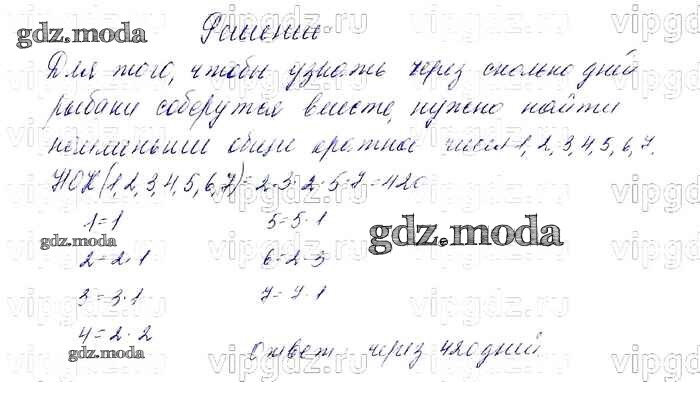 Решение
Для того, чтобы узнать через сколько дней
рыбаки соберутся вместе, нужно найти
наименьшее общее кратное чисел 1, 2, 3, 4, 5, 6, 7.
НОК(1,2,3,4,5,6,7)=2·3·2·5·7=420
1=1 5=5·1
2=2·1 6=2·3
3=3·1 7=7·1
4=2·2
Ответ: через 420 дней
gdz.moda
gdz.moda
gdz.moda
gdz.moda
vipgdz.ru